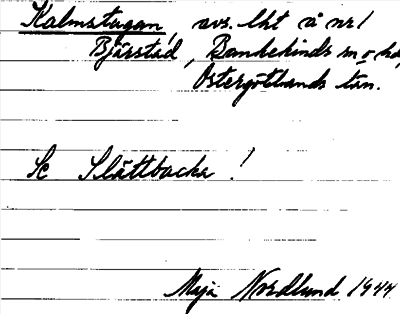 Kalmstugan, avs. lht å nr 1
Bjärstad, Bankekinds sn o hd,
Östergötlands län.
Se Slättbacka!
Maja Nordlund 1944